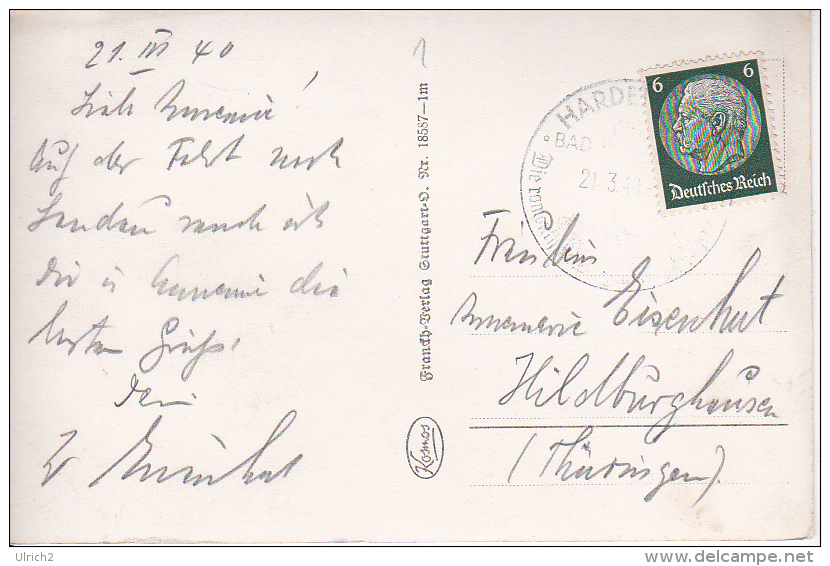 21. III 40
Liebe Annemie!
Auf der Fahrt nach
Landau sende ich
Dir u. Annemie die
besten Grüße,
Dein
Franckh-Verlag Stuttgart-O. Nr. 18587—1m
Kosmos
1
HARDE
BAD
21.3.40
6 6
Deutsches Reich
Fräulein
Annemarie Eisenhut
Hildburghausen
(Thüringen).
Ulrich2
www.delcampe.net